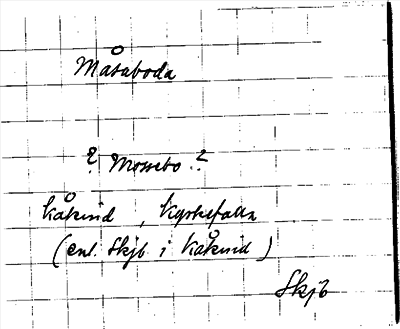 Måsaboda
? Mossebo ?
Kåkind, Kyrkefalla
(enl. Skjb i Kåkind)
Skjb